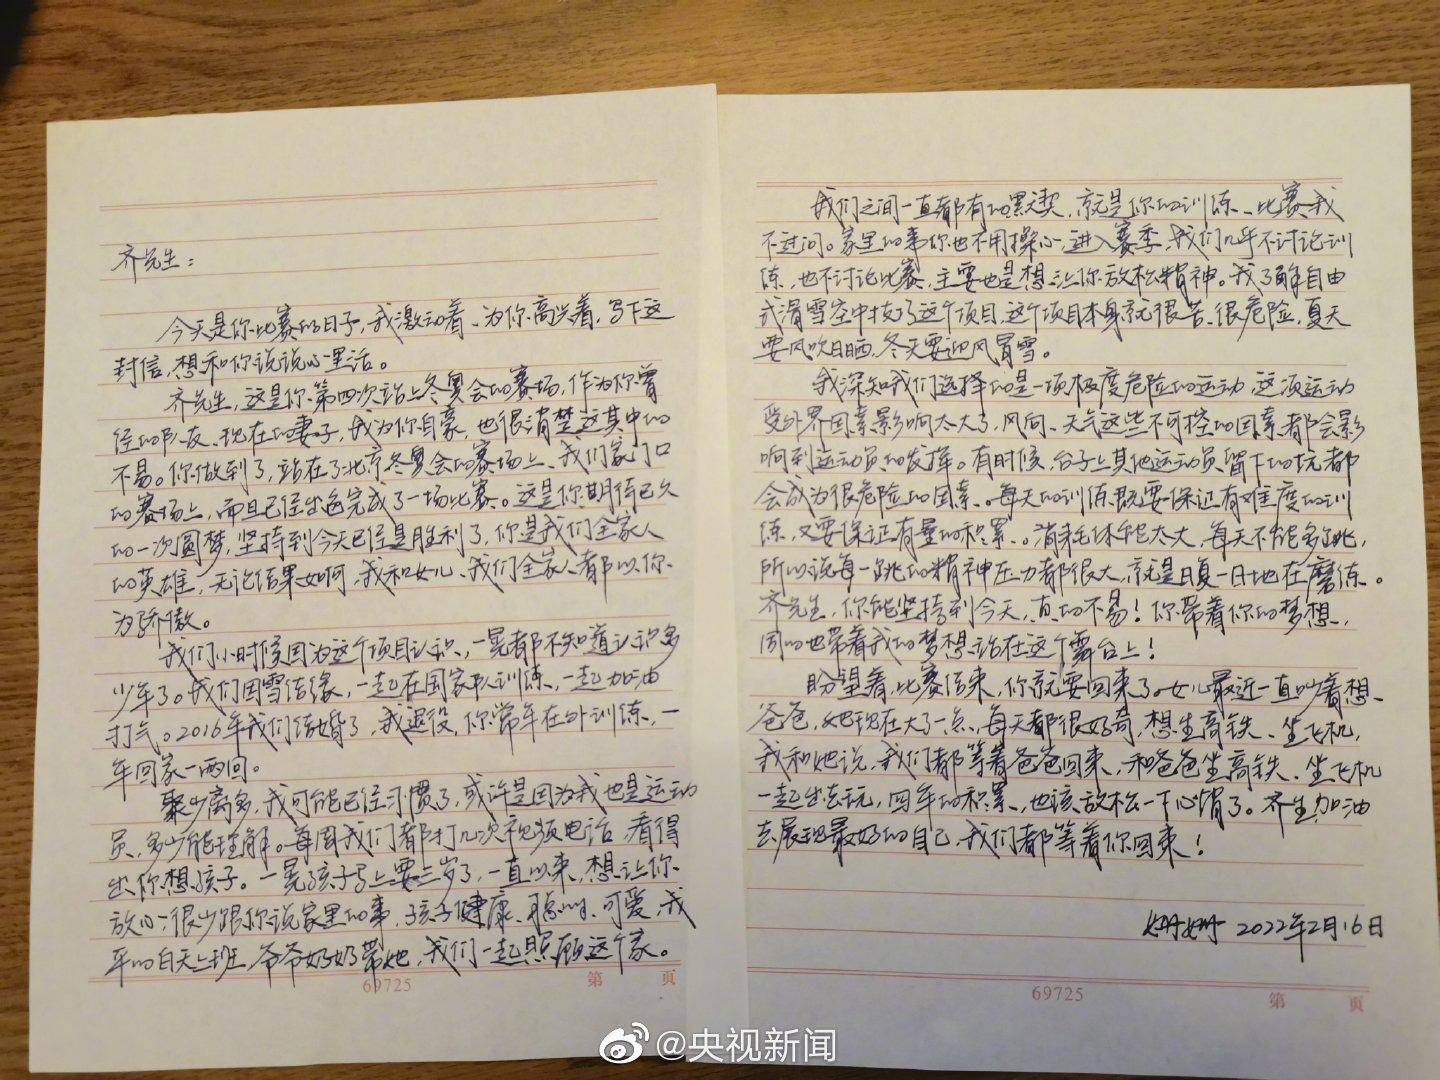 齐先生：
今天是你比赛的日子，我激动着、为你高兴着，写下这
封信，想和你说说心里话。
齐先生，这是你第四次站上冬奥会的赛场，作为你曾
经的队友、现在的妻子，我为你自豪，也很清楚这其中的
不易。你做到了，站在了北京冬奥会的赛场上、我们家门口
的赛场上，而且已经出色完成了一场比赛。这是你期待已久
的一次圆梦，坚持到今天已经是胜利了，你是我们全家人
的英雄，无论结果如何，我和女儿、我们全家人都以你
为骄傲。
我们小时候因为这个项目认识，一晃都不知道认识多
少年了。我们因雪结缘，一起在国家队训练，一起加油
打气。2016年我们结婚了，我退役，你常年在外训练，一
年回家一两回。
聚少离多，我可能已经习惯了，或许是因为我也是运动
员，多少能理解。每周我们都打几次视频电话，看得
出你想孩子。一晃孩子马上要三岁了，一直以来，想让你
放心，很少跟你说家里的事，孩子健康、聪明、可爱，我
平的白天上班，爷爷奶奶带她，我们一起照顾这个家。
69725 第 页
我们之间一直都有的默契，就是你的训练、比赛我
不过问。家里的事你也不用操心，进入赛季，我们几乎不讨论训
练，也不讨论比赛，主要也是想让你放松精神。我了解自由
式滑雪空中技巧这个项目，这个项目本身就很苦、很危险，夏天
要风吹日晒，冬天要迎风冒雪。
我深知我们选择的是一项极度危险的运动，这项运动
受外界因素影响太大了，风向、天气这些不可控的因素都会影
响到运动员的发挥。有时候，台子上其他运动员留下的坑都
会成为很危险的因素。每天的训练既要保证有难度的训
练，又要保证有量的积累。消耗体能太大，每天不能多跳，
所以说每一跳的精神压力都很大，就是日复一日地在磨练。
齐先生，你能坚持到今天，真的不易！你带着你的梦想，
同时也带着我的梦想站在这个舞台上！
盼望着，比赛结束，你就要回来了。女儿最近一直吵着想
爸爸，她现在大了一点，每天都很好奇，想坐高铁、坐飞机，
我和她说，我们都等着爸爸回来，和爸爸坐高铁、坐飞机
一起出去玩，四年的积累，也该放松一下心情了。齐先生加油
去展现最好的自己，我们都等着你回来！
2022年2月16日
69725 第 页
@央视新闻